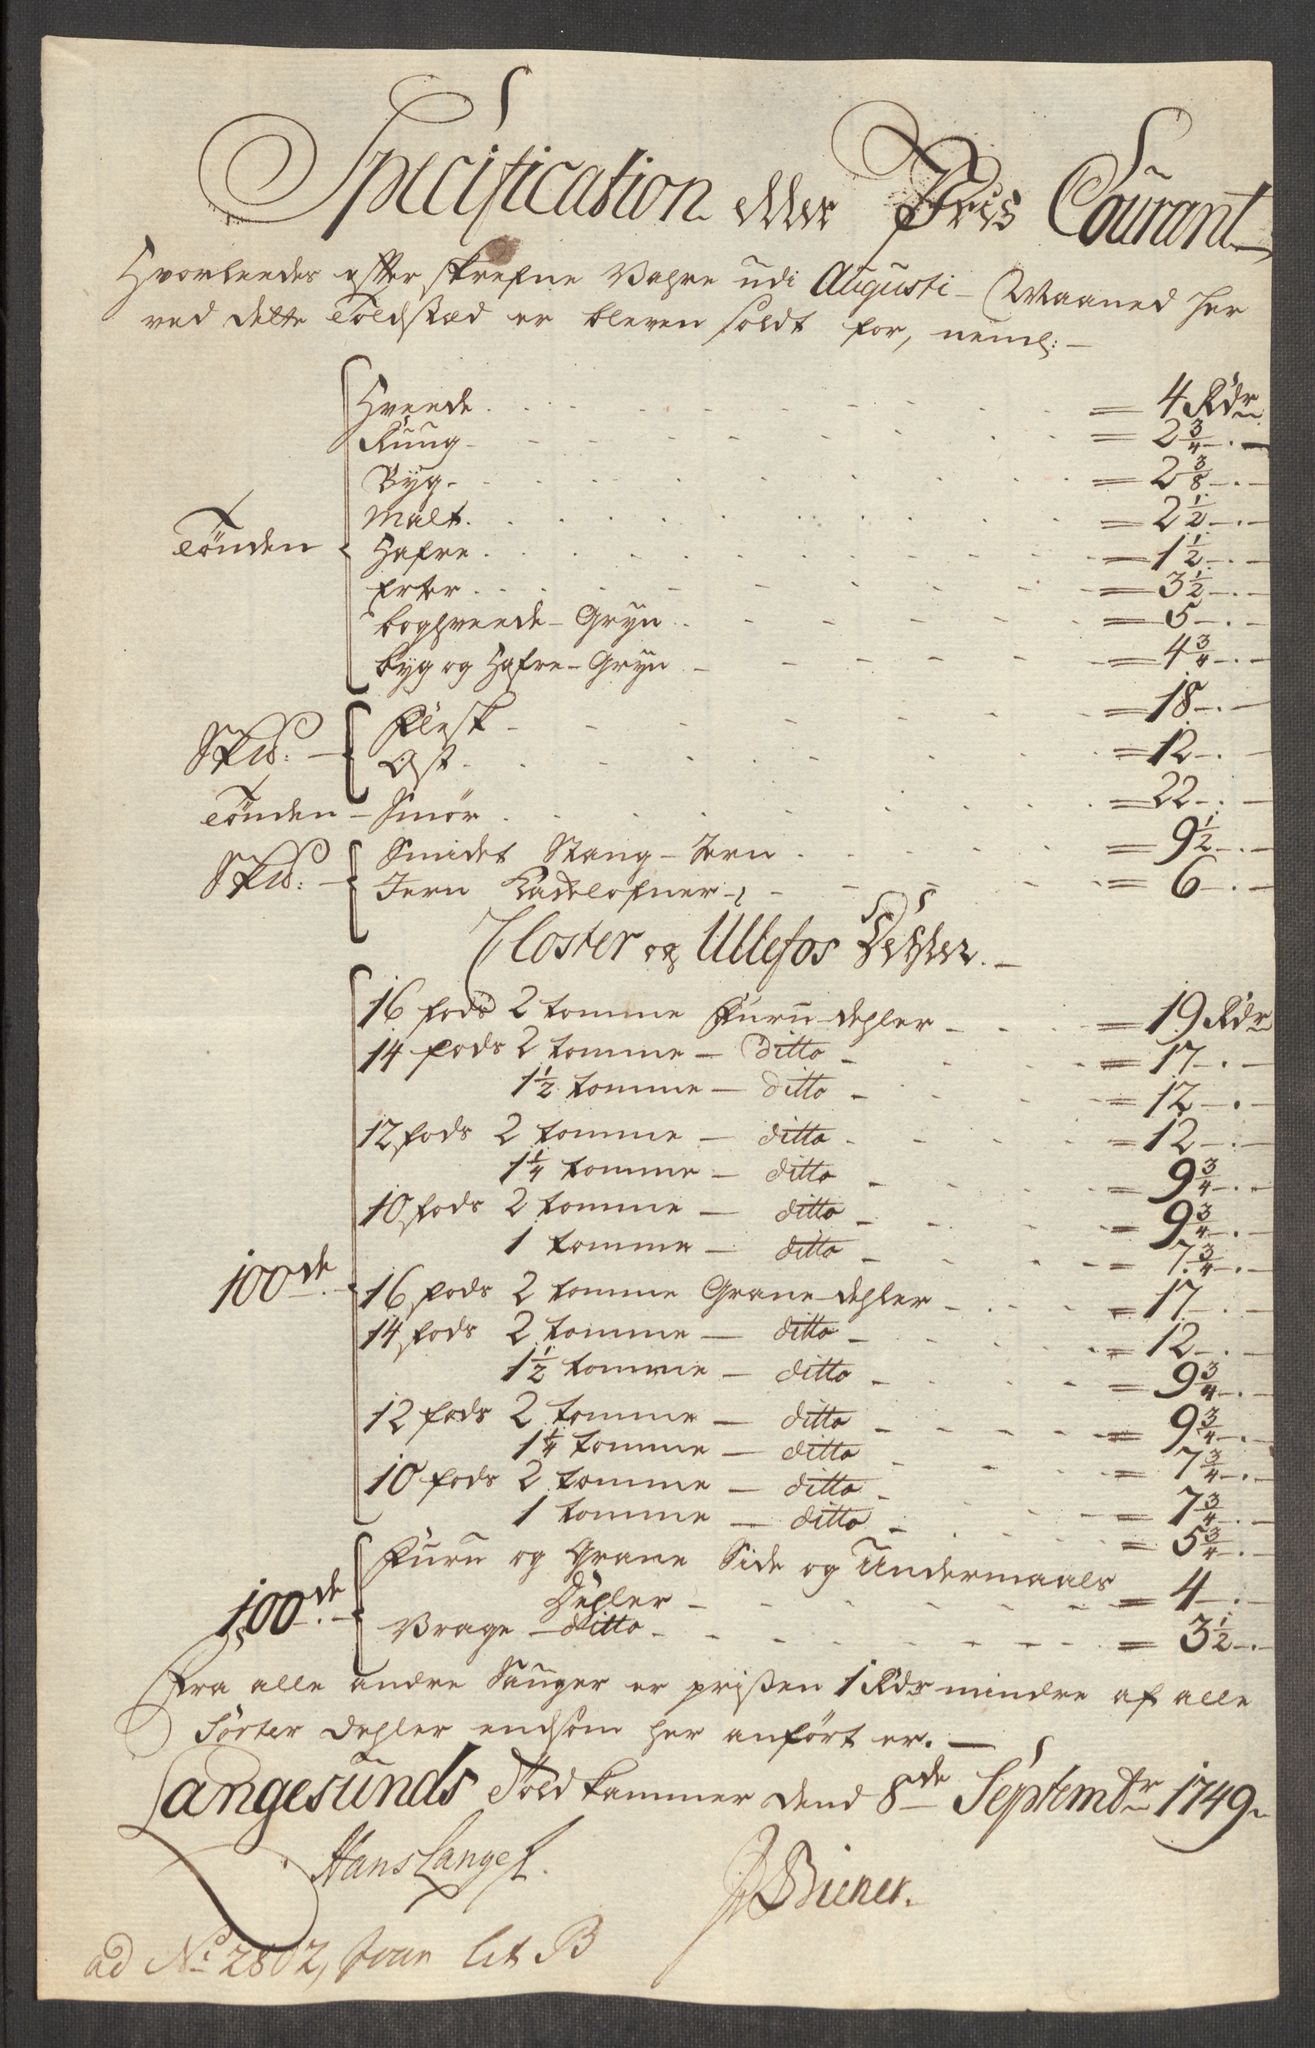 Specification eller Pris Courant
Hvorleedes efter skrefne Vahre udi Augusti Maaned her
ved dette Toldsted er bleven soldt for, neml:
Hveede = 4 Rdr
Rüug = 2 3/4
Byg = 2 3/8
Malt = 2 1/2
Tönden Hafre = 1 1/2
Erter = 3 1/2
boghveede Gryn = 5
byg og Hafre Gryn = 4 3/4
Sk℔: Flesk = 18
Ost = 12
Tönden Smör = 22
Sk℔: Smidet Stang Jern = 9 1/2
Jern Kackelofner = 6
Closter og Ullefos Dehler
16 fods 2 tomme Furu dehler = 19 Rdr
14 fods 2 tomme ditto = 17
1 1/2 tomme ditto = 12
12 fods 2 tomme ditto = 12
1 1/4 tomme ditto = 9 3/4
10 fods 2 tomme ditto = 9 3/4
1 tomme ditto = 7 3/4
100de 16 fods 2 tomme Grane dehler = 17
14 fods 2 tomme ditto = 12
1 1/2 tomme ditto = 9 3/4
12 fods 2 tomme ditto = 9 3/4
1 1/4 tomme ditto = 7 3/4
10 fods 2 tomme ditto = 7 3/4
1 tomme ditto = 5 3/4
Furu og Grane Side og Undermaals
100de Dehler = 4
Vrage ditto = 3 1/2
Fra alle andre Sauger er prißen 1 Rdr mindre af alle
Sorter dehler endsom her anfört er.
Langesunds Told kammer dend 8de Septembr 1749
Hans Lange
Biener.
ad No 2802, lit B